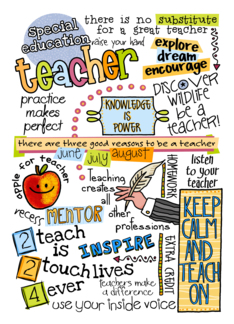 Special
education
there is no substitute
for a great teacher
raise your hand
teacher
explore
dream
encourage
practice
makes
perfect
KNOWLEDGE
IS
POWER
DISCOVER
WILDLIFE
be a
teacher!
there are three good reasons to be a teacher
june july august
apple for teacher
Teaching
creates
all other
professions
HOMEWORK
listen
to your
teacher
recess
MENTOR
KEEP
CALM
AND
TEACH
ON
2 teach
is
INSPIRE
2 touch lives
4 ever
EXTRA CREDIT
teachers make
a difference
use your inside voice